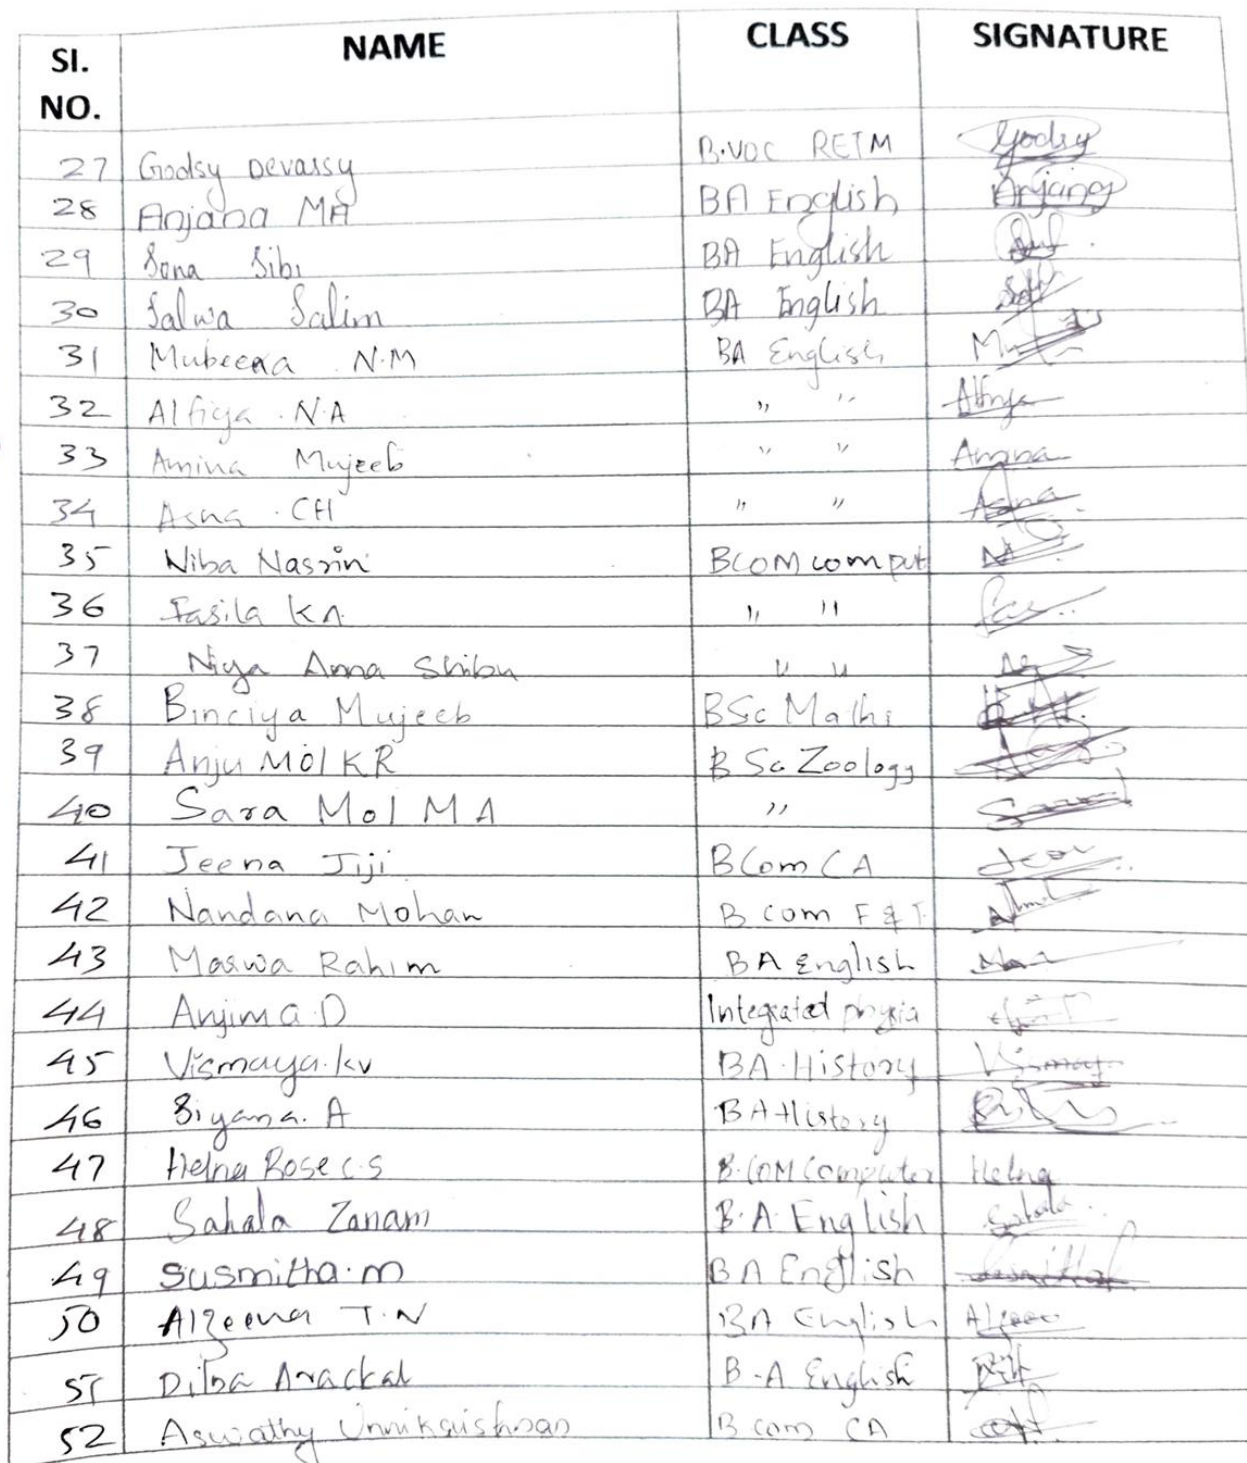 SI. NO. NAME CLASS SIGNATURE
27 Godsy Devassy B.VOC RETM Godsy
28 Anjana MA BA English Anjana
29 Sona Sibi BA English
30 Salwa Salim BA English
31 Mubeena N.M BA English
32 Alfiya . N.A " " Alfiya
33 Amina Mujeeb " " Amina
34 Asna . CH " " Asna
35 Niba Nasrin BCOM comput
36 Fasila K.A. " "
37 Niya Anna Shibu " "
38 Binciya Mujeeb BSc Maths
39 Anju Mol KR B Sc Zoology
40 Sara Mol M A "
41 Jeena Jiji BCom CA
42 Nandana Mohan B com F & T
43 Marwa Rahim BA English
44 Anjima D Integrated physics
45 Vismaya.kv BA.History Vismay
46 Siyana. A BA History
47 Helna Rose C.S B.COM Computer Helna
48 Sahala Zanam B.A. English Sahala
49 Susmitha.m BA English
50 Alzeena T.N BA English
51 Dilba Arackal B.A English
52 Aswathy Unnikrishnan B com CA